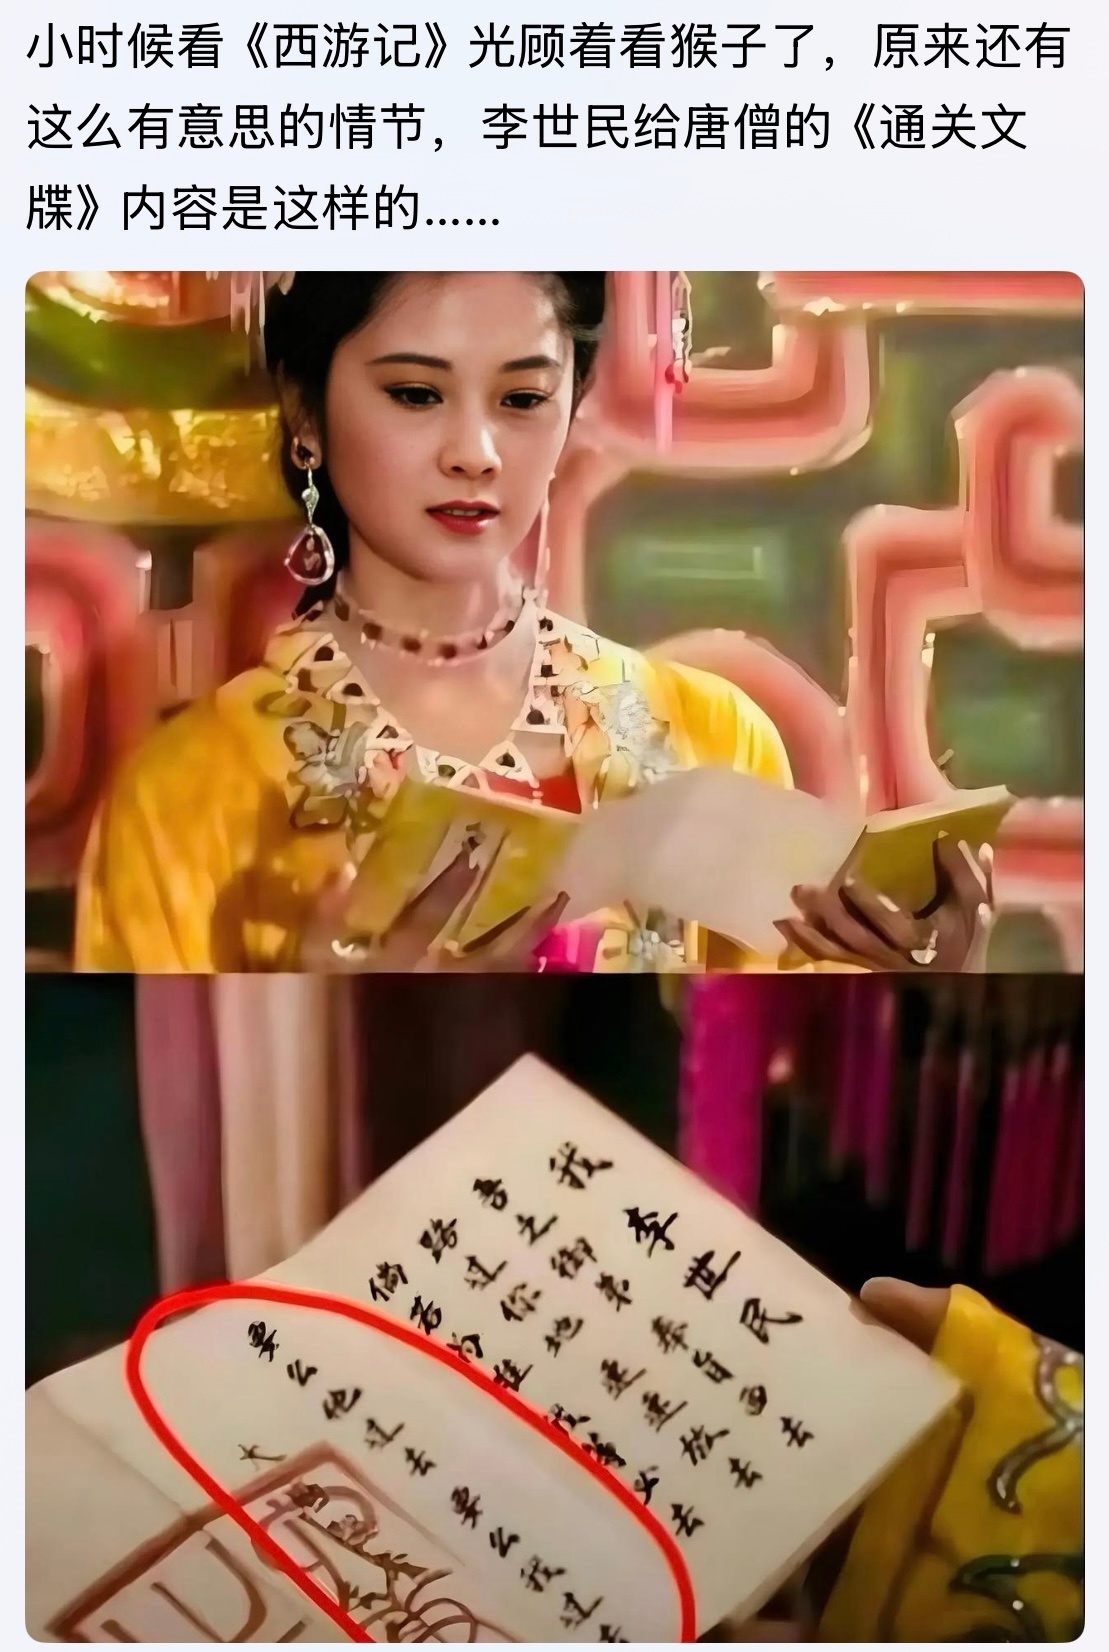 小时候看《西游记》光顾着看猴子了，原来还有
这么有意思的情节，李世民给唐僧的《通关文
牒》内容是这样的……
我李世民
吾之御弟奉旨西去
路过你地速速放去
倘若为难 必去
要么他过去要么我过去
大